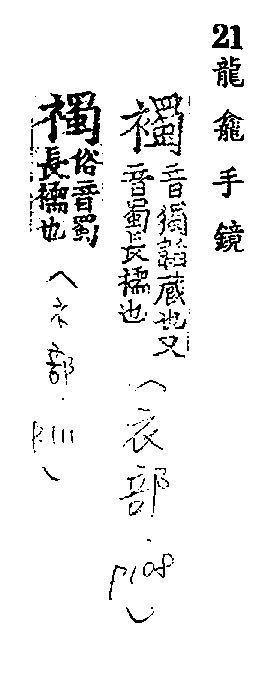 21龍龕手鏡
襡音獨韜藏也又音蜀長襦也（衣部．p108）
襡俗音蜀長襦也（衣部．p111）